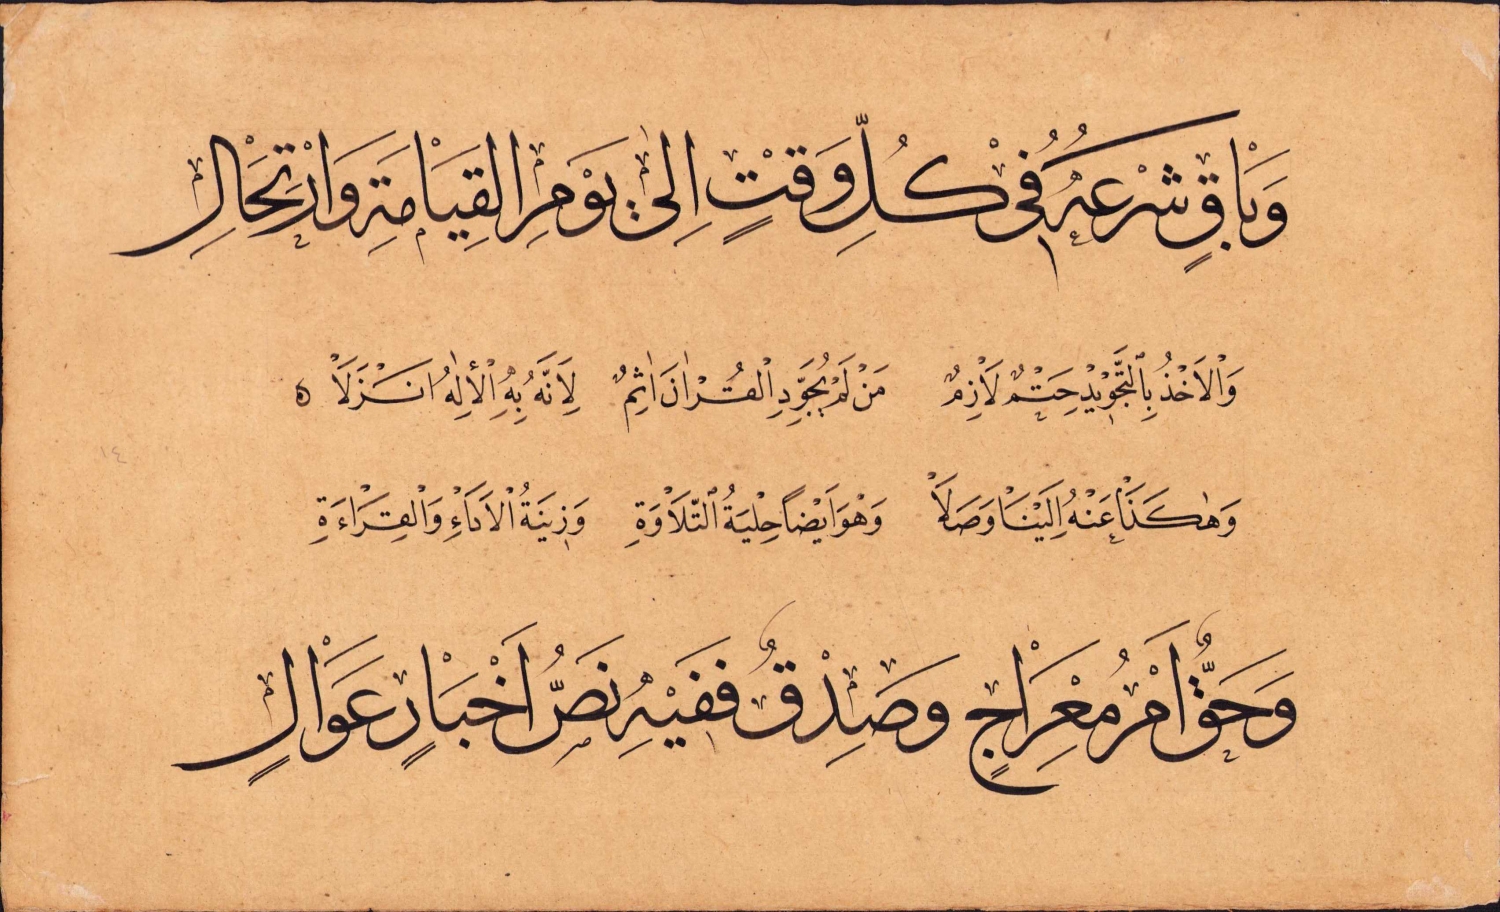 وَبَاقٍ شَرْعُهُ فِى كُلِّ وَقْتٍ اِلٰى يَوْمِ الْقِيَامَةِ وَارْتِحَالِ
وَالْاَخْذُ بِالتَّجْوِيْدِ حَتْمٌ لَازِمٌ مَنْ لَمْ يُجَوِّدِ الْقُرْاٰنَ اٰثِمٌ لِاَنَّهُ بِهِ الْاِلٰهُ اَنْزَلَا
١٤
وَهٰكَذَا عَنْهُ اِلَيْنَا وَصَلَا وَهْوَ اَيْضًا حِلْيَةُ التِّلَاوَةِ وَزِينَةُ الْاَدَاءِ وَالْقِرَاءَةِ
وَحَقٌّ اَمْرُ مِعْرَاجٍ وَصِدْقٌ فَفِيْهِ نَصُّ اَخْبَارٍ عَوَالٍ